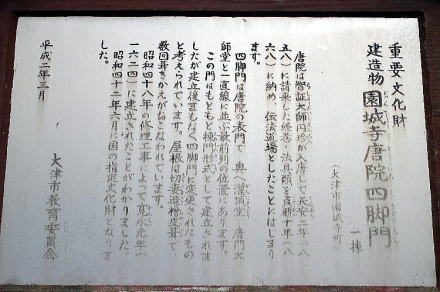 重要文化財
建造物 園城寺唐院四脚門 一棟
(大津市園城寺町)
唐院は智証大師円珍が入唐して天安二年(八
五八)に請来した経巻・法具類を貞観十年(八
六八)に納め、伝法道場としたことにはじまり
ます。
四脚門は唐院の表門で、奥へ灌頂堂、唐門、大
師堂と一直線に並ぶ最前列の位置にあります。
この門はもともと棟門形式として建立されま
したが建立後まもなく、四脚門に変更されたもの
と考えられています。屋根は桧皮葺で
数回葺きかえがおこなわれています。
昭和四十八年の修理工事によって寛永元年(
一六二四)に建立されたことがわかりました。
昭和四十二年六月に国の指定文化財となりま
した。
平成二年三月
大津市教育委員会